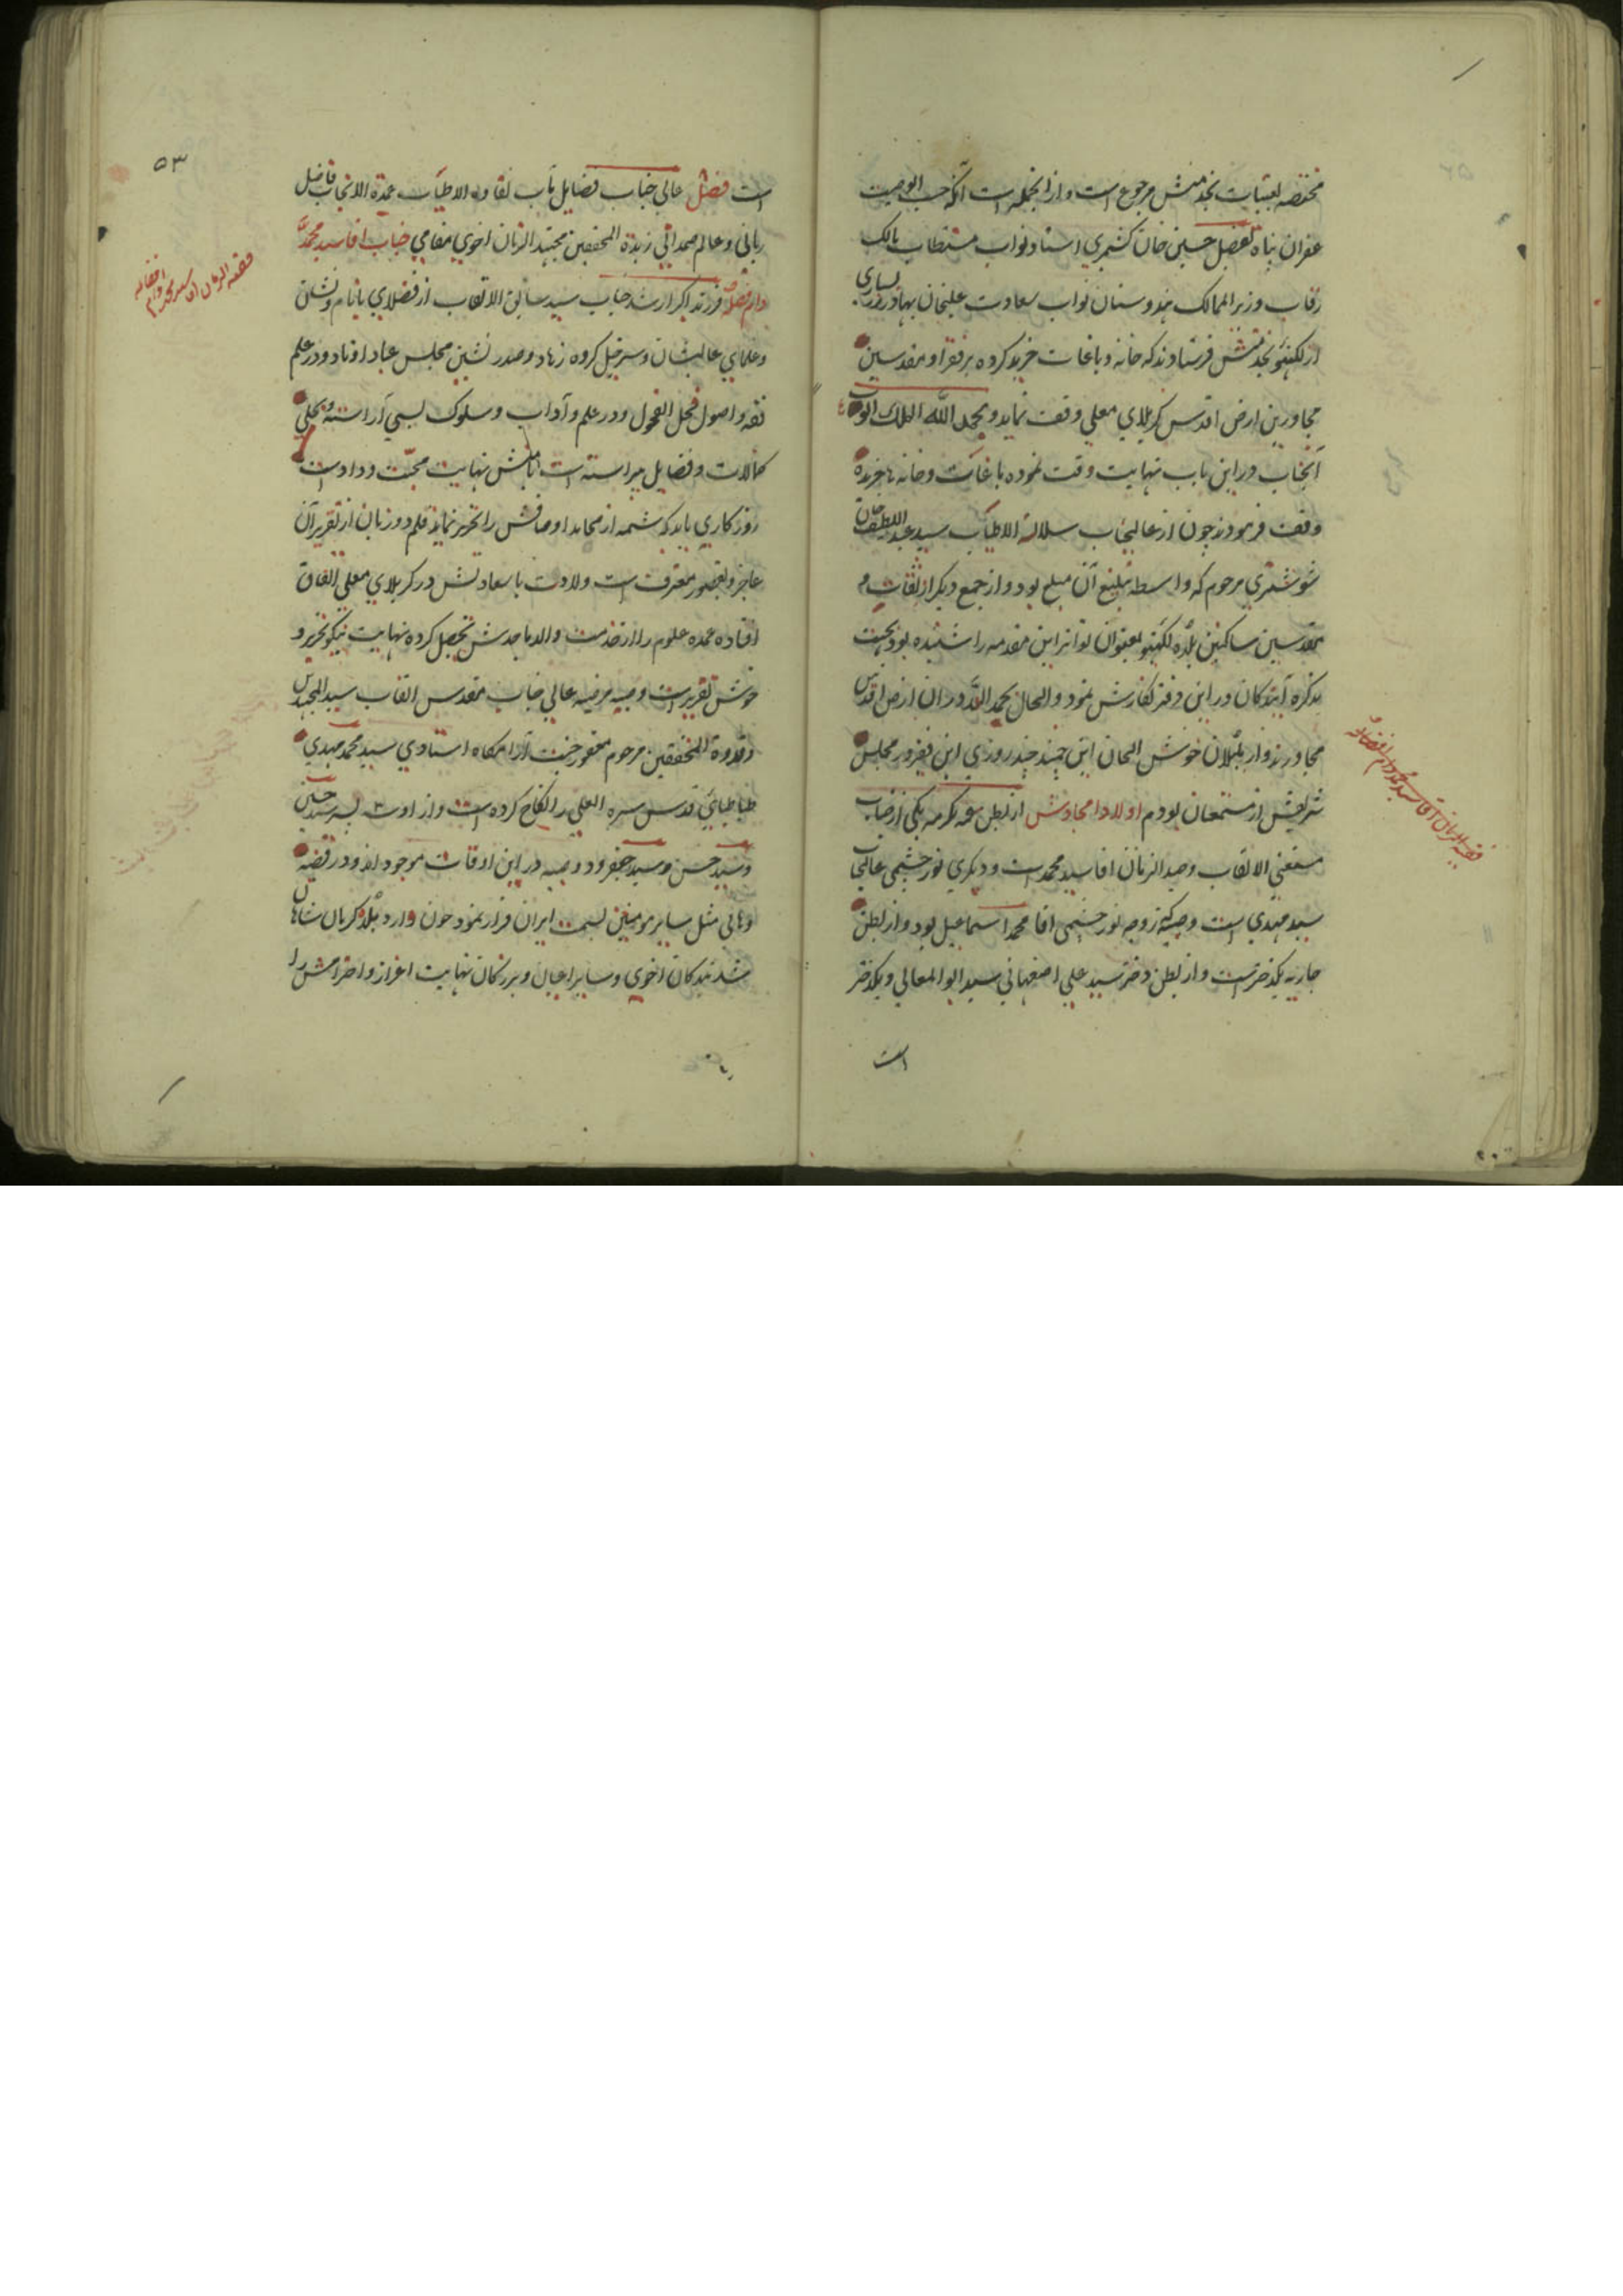 مختصه بعتبات بخدمتش مرجوع است و از انجمله است آنکه حسب الوصیت
غفران پناه تفضل حسین خان کشمیری استاد نواب مستطاب مالک
رقاب وزیر الممالک هندوستان نواب سعادت علیخان بهادر
از لکهنئو بخدمتش فرستادند که خانه و باغات خرید کرده بر فقرا و مقدسین
مجاورین ارض اقدس کربلای معلی وقف نماید و بحمد الله الملک الوهاب
آنجناب در این باب نهایت دقت نموده باغات و خانه ها خریده
وقف فرمودند چون از عالیجناب سلالة الاطیاب سید عبد اللطیف خان
شوشتری مرحوم که واسطه تبلیغ آن مبلغ بود و از جمع دیگر از ثقات و
مقدسین ساکنین بلده لکهنئو بعنوان تواتر این مقدمه را شنیده بود بجهت
تذکره آیندگان در این دفتر نگارش نمود و الحال بحمد الله در ان ارض اقدس
مجاورند و از بلبلان خوش الحان این چند روزی این فقیر در مجلس
شریفش از مستمعان بودم اولاد امجادش از بطن عمه مکرمه یکی از جناب
مستغنی الالقاب وحید الزمان اقا سید محمد است و دیگری نور چشمی عالیجناب
سید مهدی است و صبیه زوجه نور چشمی اقا محمد اسماعیل بود و از بطن
جاریه یکدختر است و از بطن دختر سید علی اصفهانی سید ابو المعالی و یکدختر
است
فقیه الزمان آقا سید محمد دام افضاله
۵۳
است فضل عالی جناب فضایل مآب نقاوه الاطیاب عمدة الانجاب فاضل
ربانی و عالم صمدانی زبدة المحققین مجتهد الزمان اخوی مقامی جناب اقا سید محمد
دام فضله فرزند اکبر ارشد جناب سید سابق الالقاب از فضلای با نام و نشان
و علمای عالیشان و سرخیل گروه زهاد و صدر نشین مجلس عباد اوتاد و در علم
فقه و اصول فحل الفحول و در علم و آداب و سلوک بسی آراسته و بحلی
کمالات و فضایل پیراسته است با منش نهایت محبت و وداد است
روزگاری باید که شمه از محامد اوصافش را تحریر نماید قلم دو زبان از تقریر آن
عاجز و بقصور معترف است ولادت با سعادتش در کربلای معلی اتفاق
افتاده عمده علوم را از خدمت والد ماجدش تحصیل کرده نهایت نیکو تحریر و
خوش تقریر است و صبیه مرضیه عالی جناب مقدس القاب سید المجتهدین
و قدوة المحققین مرحوم مغفور جنت آرامگاه استادی سید محمد مهدی
طباطبائی قدس سره العلی را نکاح کرده است و از او سه پسر سید حسین
و سید حسن و سید جعفر و دو صبیه در این اوقات موجود اند و در قضیه
وهابی مثل سایر مومنین بسمت ایران فرار نمود چون وارد بلده کرمان شاهان
شد بندگان اخوی و سایر اعیان و بزرگان نهایت اعزاز و احترامش را
فقیه الزمان آقا سید محمد دام افضاله